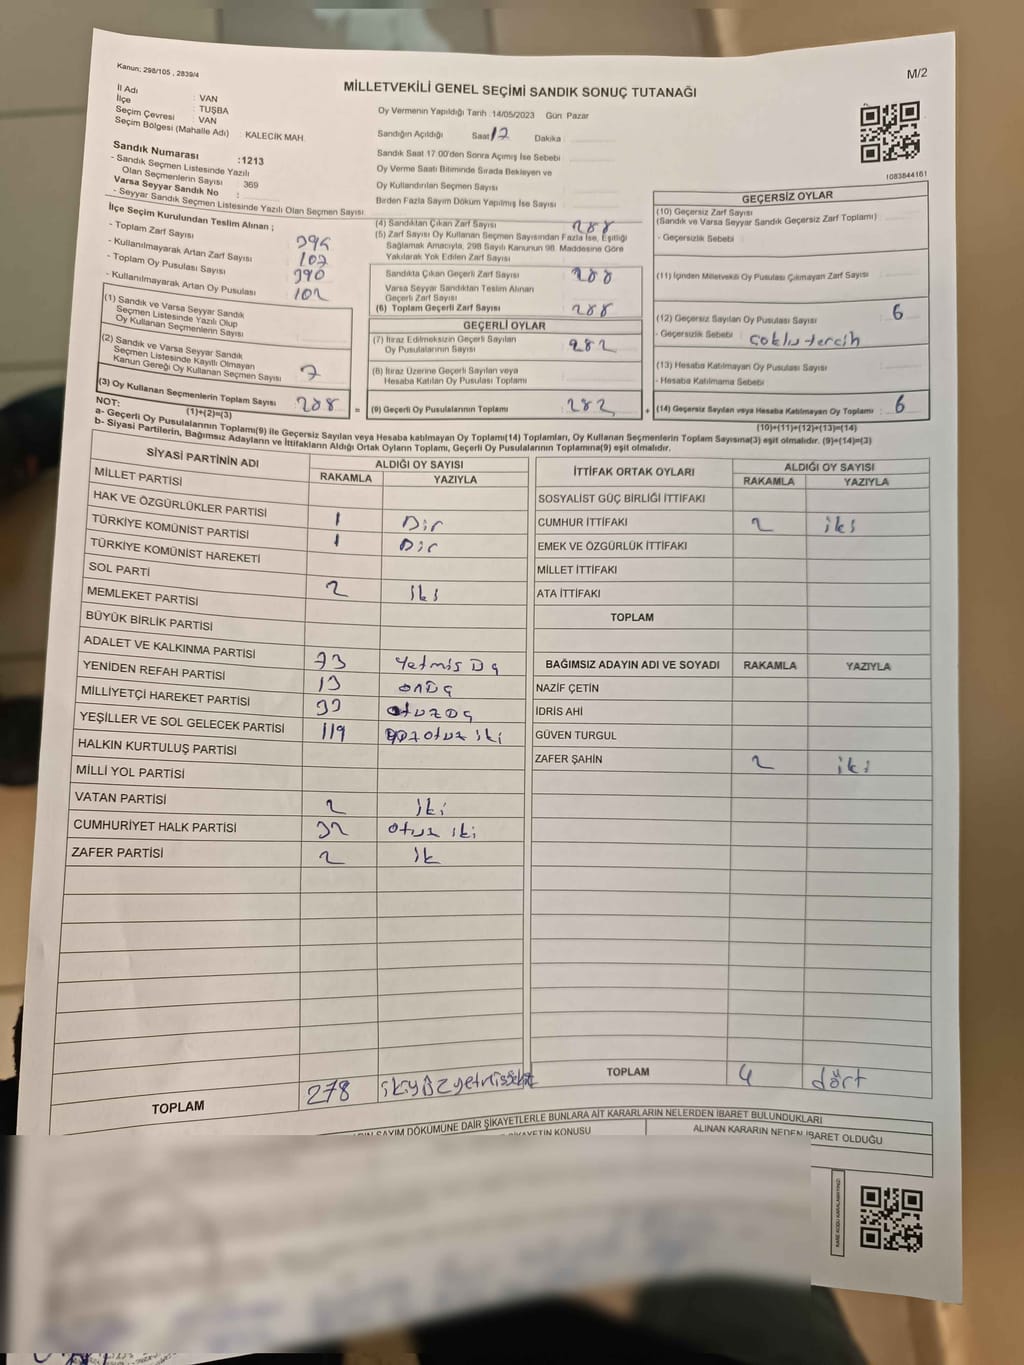 Kanun; 298/105 , 2839/4
M/2
MİLLETVEKİLİ GENEL SEÇİMİ SANDIK SONUÇ TUTANAĞI
İl Adı : VAN
İlçe : TUŞBA
Seçim Çevresi : VAN
Seçim Bölgesi (Mahalle Adı) : KALECİK MAH.
Sandık Numarası :1213
- Sandık Seçmen Listesinde Yazılı
Olan Seçmenlerin Sayısı : 369
Varsa Seyyar Sandık No :
- Seyyar Sandık Seçmen Listesinde Yazılı Olan Seçmen Sayısı
Oy Vermenin Yapıldığı Tarih :14/05/2023 Gün Pazar
Sandığın Açıldığı Saat 17 Dakika
Sandık Saat 17:00'den Sonra Açımış İse Sebebi
Oy Verme Saati Bitiminde Sırada Bekleyen ve
Oy Kullandırılan Seçmen Sayısı
Birden Fazla Sayım Döküm Yapılmış İse Sayısı
1083844161
İlçe Seçim Kurulundan Teslim Alınan ;
- Toplam Zarf Sayısı
- Kullanılmayarak Artan Zarf Sayısı 102
- Toplam Oy Pusulası Sayısı 390
- Kullanılmayarak Artan Oy Pusulası 102
(1) Sandık ve Varsa Seyyar Sandık
Seçmen Listesinde Yazılı Olup
Oy Kullanan Seçmenlerin Sayısı
(2) Sandık ve Varsa Seyyar Sandık
Seçmen Listesinde Kayıtlı Olmayan
Kanun Gereği Oy Kullanan Seçmen Sayısı 7
(3) Oy Kullanan Seçmenlerin Toplam Sayısı 288
(1)+(2)=(3)
(4) Sandıktan Çıkan Zarf Sayısı 288
(5) Zarf Sayısı Oy Kullanan Seçmen Sayısından Fazla İse, Eşitliği
Sağlamak Amacıyla, 298 Sayılı Kanunun 98. Maddesine Göre
Yakılarak Yok Edilen Zarf Sayısı
Sandıkta Çıkan Geçerli Zarf Sayısı 288
Varsa Seyyar Sandıktan Teslim Alınan
Geçerli Zarf Sayısı
(6) Toplam Geçerli Zarf Sayısı 288
GEÇERLİ OYLAR
(7) İtiraz Edilmeksizin Geçerli Sayılan
Oy Pusulalarının Sayısı 282
(8) İtiraz Üzerine Geçerli Sayılan veya
Hesaba Katılan Oy Pusulası Toplamı
= (9) Geçerli Oy Pusulalarının Toplamı 282
GEÇERSİZ OYLAR
(10) Geçersiz Zarf Sayısı
(Sandık ve Varsa Seyyar Sandık Geçersiz Zarf Toplamı)
- Geçersizlik Sebebi
(11) İçinden Milletvekili Oy Pusulası Çıkmayan Zarf Sayısı
(12) Geçersiz Sayılan Oy Pusulası Sayısı 6
- Geçersizlik Sebebi çoklu tercih
(13) Hesaba Katılmayan Oy Pusulası Sayısı
- Hesaba Katılmama Sebebi
+ (14) Geçersiz Sayılan veya Hesaba Katılmayan Oy Toplamı : 6
(10)+(11)+(12)+(13)=(14)
NOT:
a- Geçerli Oy Pusulalarının Toplamı(9) ile Geçersiz Sayılan veya Hesaba katılmayan Oy Toplamı(14) Toplamları, Oy Kullanan Seçmenlerin Toplam Sayısına(3) eşit olmalıdır. (9)+(14)=(3)
b- Siyasi Partilerin, Bağımsız Adayların ve İttifakların Aldığı Ortak Oyların Toplamı, Geçerli Oy Pusulalarının Toplamına(9) eşit olmalıdır.
SİYASİ PARTİNİN ADI ALDIĞI OY SAYISI
RAKAMLA YAZIYLA
MİLLET PARTİSİ
HAK VE ÖZGÜRLÜKLER PARTİSİ 1 Bir
TÜRKİYE KOMÜNİST PARTİSİ 1 Bir
TÜRKİYE KOMÜNİST HAREKETİ
SOL PARTİ 2 iki
MEMLEKET PARTİSİ
BÜYÜK BİRLİK PARTİSİ
ADALET VE KALKINMA PARTİSİ 73 Yetmiş Üç
YENİDEN REFAH PARTİSİ 13 on üç
MİLLİYETÇİ HAREKET PARTİSİ 33 otuz üç
YEŞİLLER VE SOL GELECEK PARTİSİ 119
HALKIN KURTULUŞ PARTİSİ
MİLLİ YOL PARTİSİ
VATAN PARTİSİ 2 iki
CUMHURİYET HALK PARTİSİ 32 otuz iki
ZAFER PARTİSİ 2 ik
TOPLAM 278 ikiyüzyetmişsekiz
İTTİFAK ORTAK OYLARI ALDIĞI OY SAYISI
RAKAMLA YAZIYLA
SOSYALİST GÜÇ BİRLİĞİ İTTİFAKI
CUMHUR İTTİFAKI 2 iki
EMEK VE ÖZGÜRLÜK İTTİFAKI
MİLLET İTTİFAKI
ATA İTTİFAKI
TOPLAM
BAĞIMSIZ ADAYIN ADI VE SOYADI RAKAMLA YAZIYLA
NAZİF ÇETİN
İDRİS AHİ
GÜVEN TURGUL
ZAFER ŞAHİN 2 iki
TOPLAM 4 dört
SAYIM DÖKÜMÜNE DAİR ŞİKAYETLERLE BUNLARA AİT KARARLARIN NELERDEN İBARET BULUNDUKLARI
ŞİKAYETİN KONUSU ALINAN KARARIN NEDEN İBARET OLDUĞU